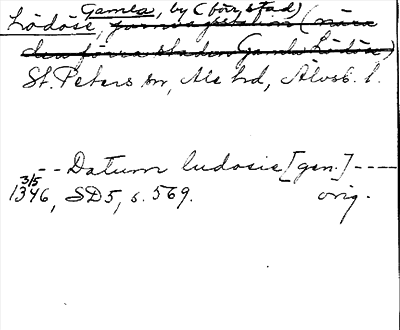 Gamla, by (förr stad)
Lödöse, fornlämn (nära
den förra staden Gamla Lödöse)
St. Peters sn, Ale hd, Älvsb. l.
-- Datum ludosie [gen.] ----
3/5
1346, SD5, s. 569. orig.